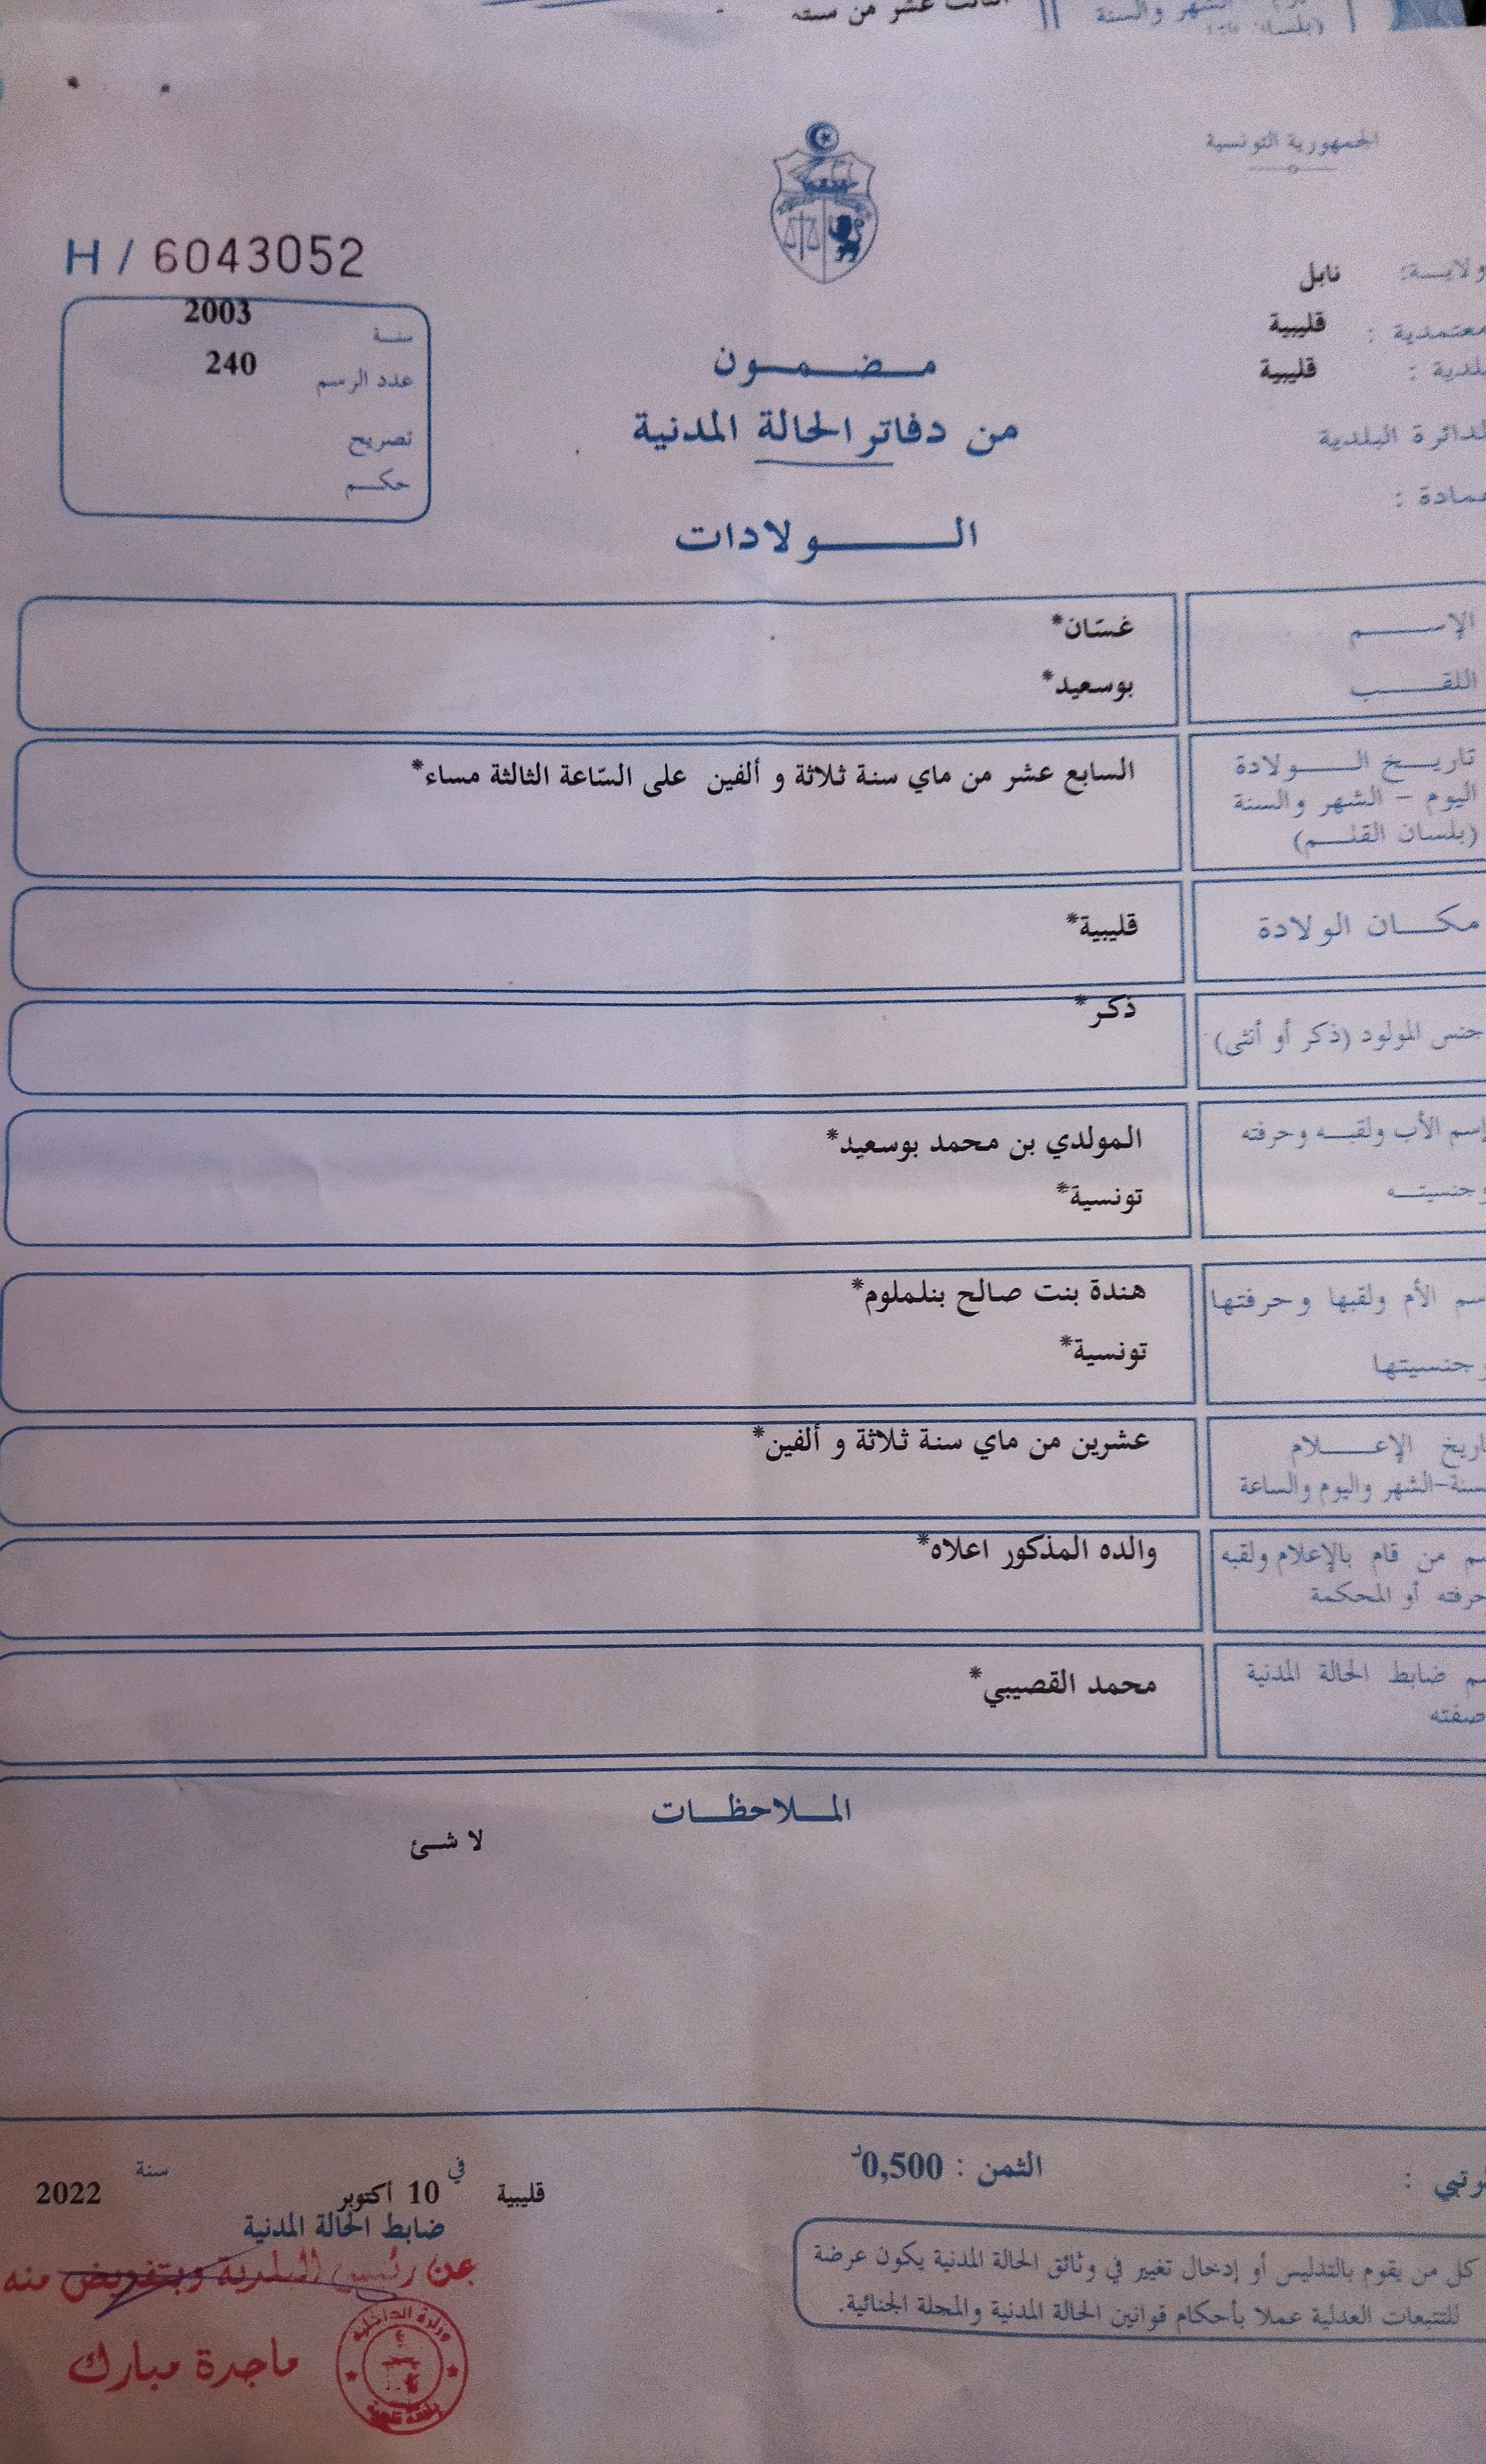 الثالث عشر من سنة
الشهر والسنة
الجمهورية التونسية
H / 6043052
ولاية: نابل
معتمدية : قليبية
بلدية : قليبية
الدائرة البلدية
عمادة :
سنة 2003
عدد الرسم 240
تصريح
حكم
مضمون
من دفاتر الحالة المدنية
الولادات
الإسم غسّان*
اللقب بوسعيد*
تاريخ الولادة
اليوم - الشهر والسنة
(بلسان القلم)
السابع عشر من ماي سنة ثلاثة و ألفين على السّاعة الثالثة مساء*
مكان الولادة قليبية*
جنس المولود (ذكر أو أنثى) ذكر*
إسم الأب ولقبه وحرفته المولدي بن محمد بوسعيد*
وجنسيته تونسية*
إسم الأم ولقبها وحرفتها هندة بنت صالح بنلملوم*
وجنسيتها تونسية*
تاريخ الإعلام
السنة-الشهر واليوم والساعة
عشرين من ماي سنة ثلاثة و ألفين*
إسم من قام بالإعلام ولقبه
حرفته أو المحكمة
والده المذكور اعلاه*
إسم ضابط الحالة المدنية
صفته
محمد القصيبي*
الملاحظات
لا شئ
الثمن : 0,500د
قليبية في 10 أكتوبر سنة 2022
ضابط الحالة المدنية
عن رئيس البلدية وبتفويض منه
ماجدة مبارك
وزارة الداخلية
كل من يقوم بالتدليس أو إدخال تغيير في وثائق الحالة المدنية يكون عرضة
للتتبعات العدلية عملا بأحكام قوانين الحالة المدنية والمجلة الجنائية.